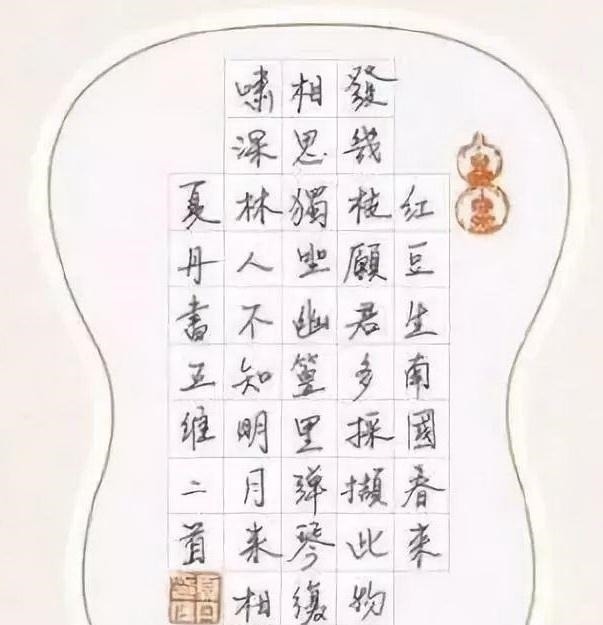 红豆生南國春来
發幾枝願君多採擷此物
相思獨坐幽篁里弹琴復
嘯深林人不知明月来相
夏丹書王维二首